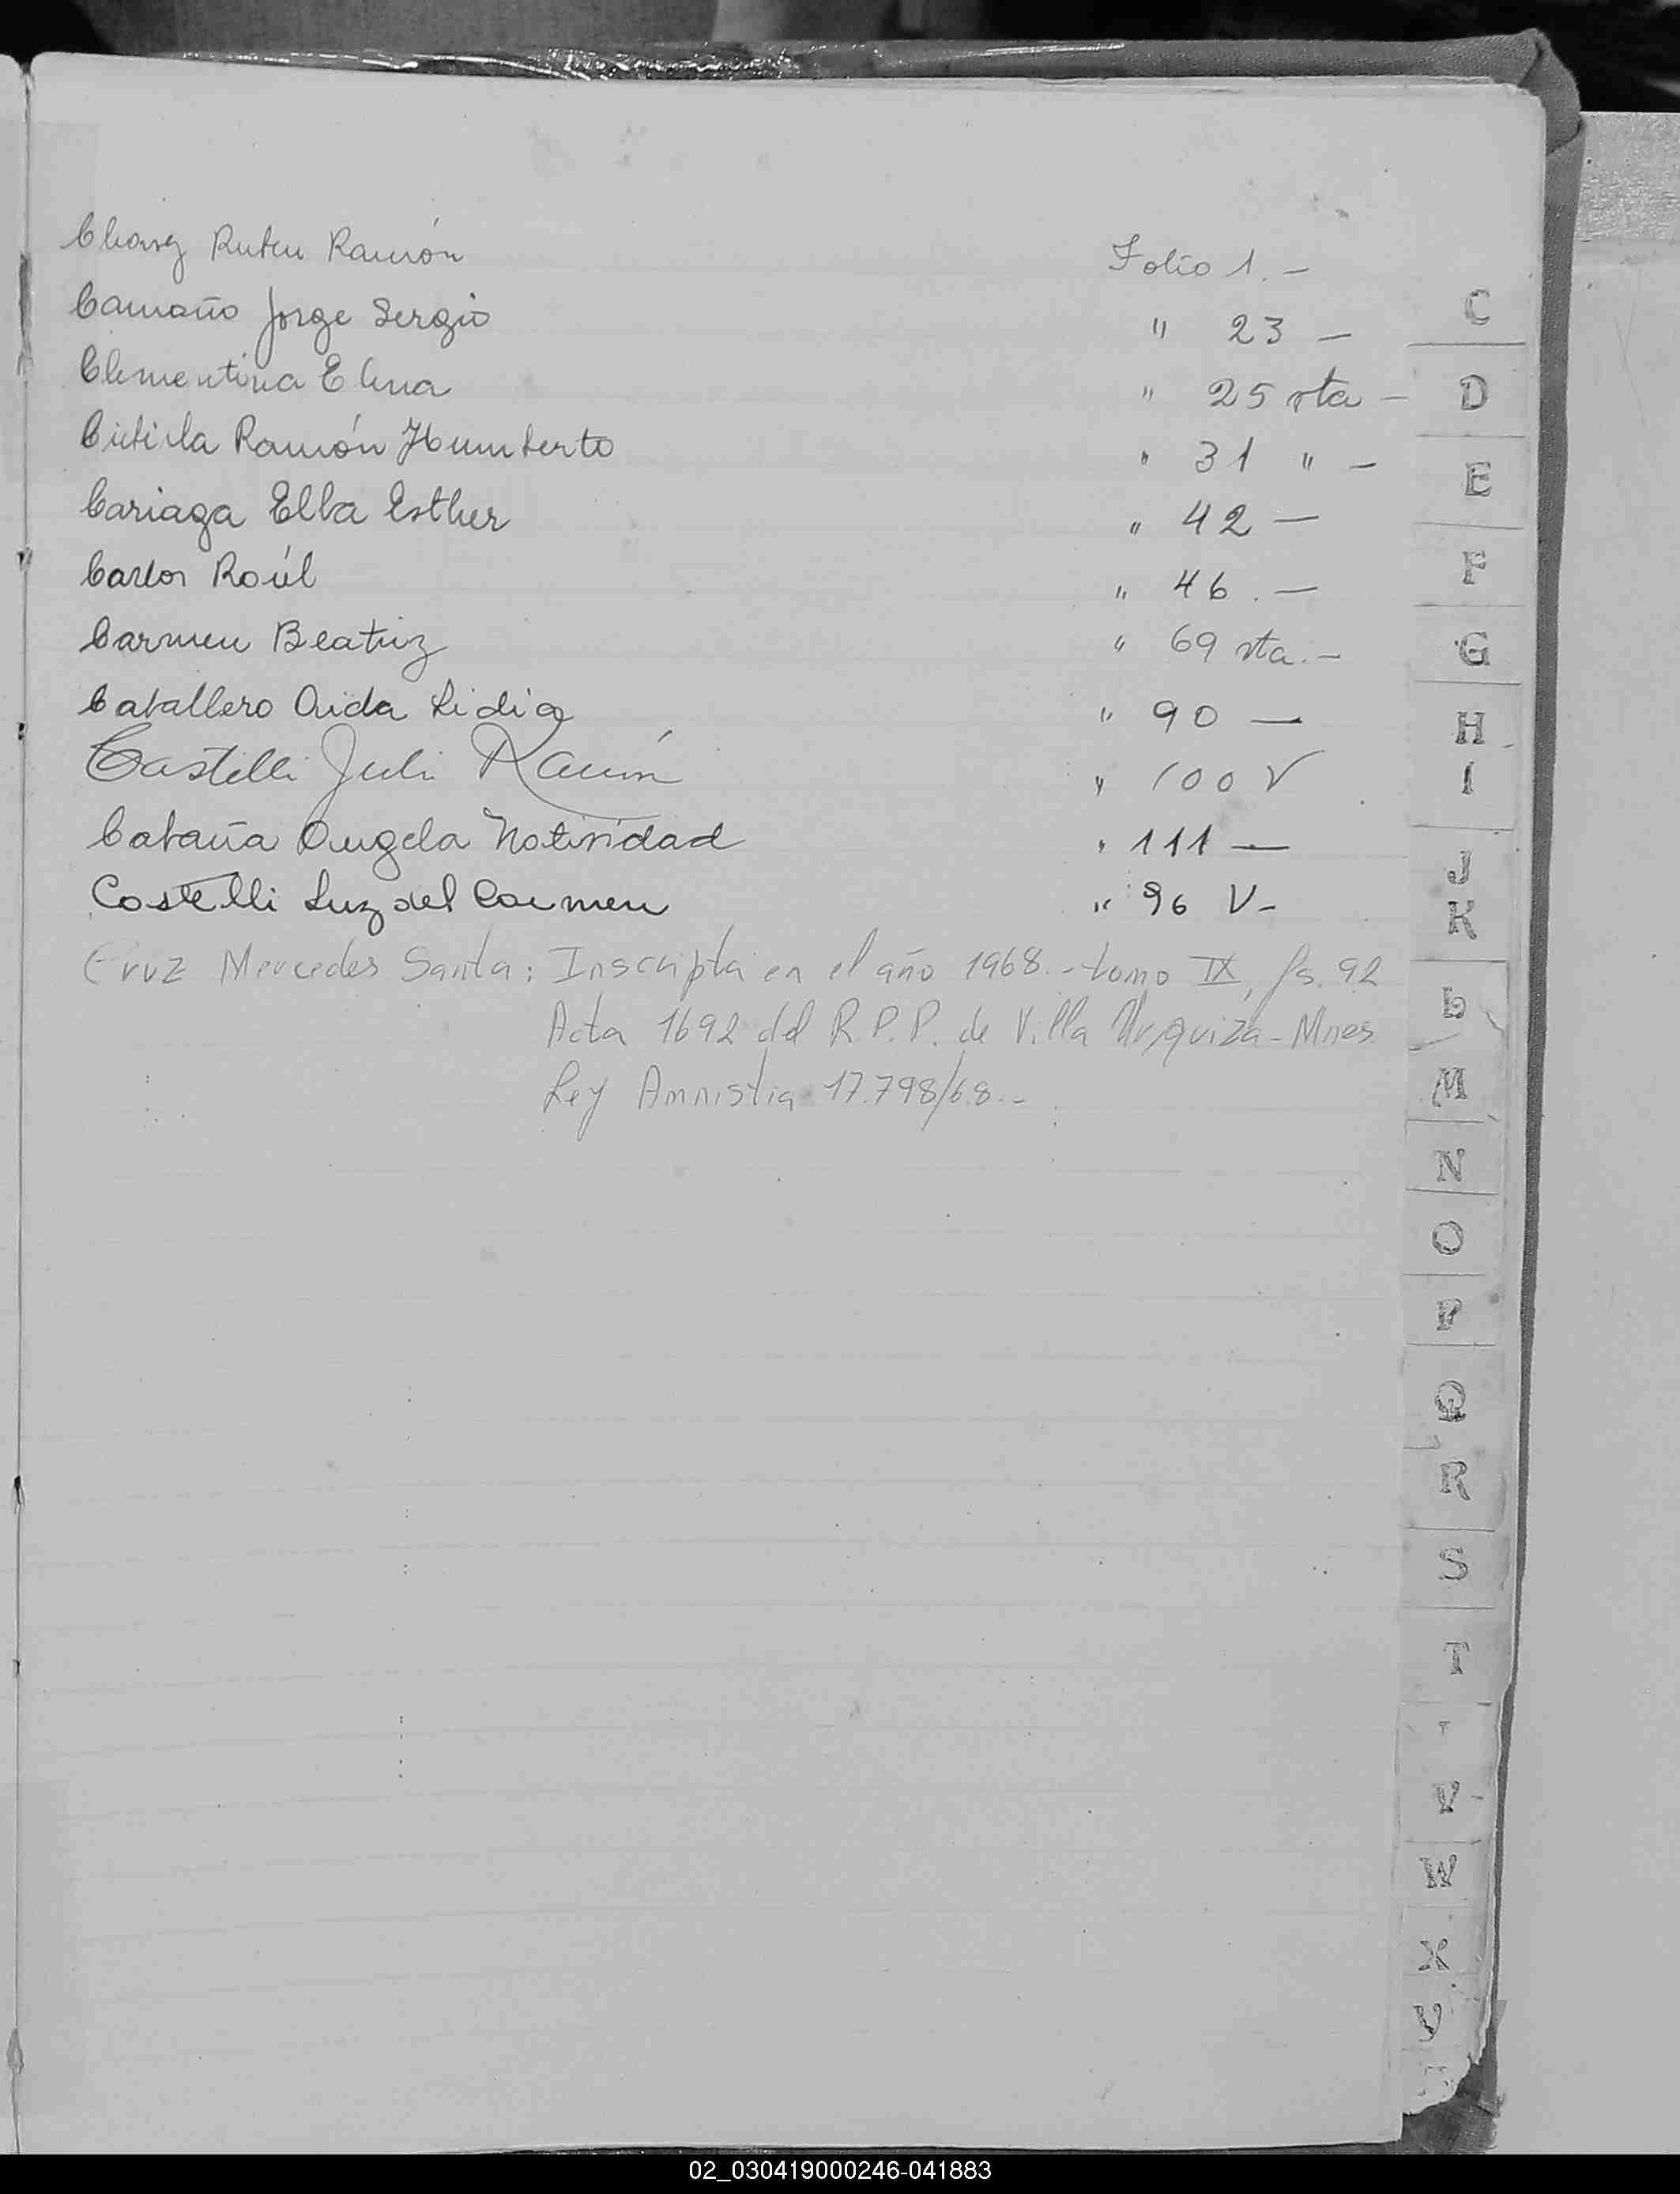 Chavez Ruben Ramón Folio 1.-
Camaño Jorge Sergio " 23 —
Clementina Elena " 25 vta —
Ramón Humberto " 31 " —
Cariaga Elba Esther " 42 —
Carlos Raúl " 46.—
Carmen Beatriz " 69 vta.-
Caballero Aida Lidia " 90 —
Castelli Julio Ramón " 100 V
Cabaña Angela Natividad " 111 —
Castelli Luz del Carmen " 96 V-
Cruz Mercedes Santa: Inscripta en el año 1968.- tomo IX, fs. 92
Acta 1692 del R.P.P. de Villa Urquiza - Mnes.
Ley Amnistia 17.798/68.-
C
D
E
F
G
H
I
J
K
L
M
N
O
P
Q
R
S
T
V
W
X
Y
02_030419000246-041883